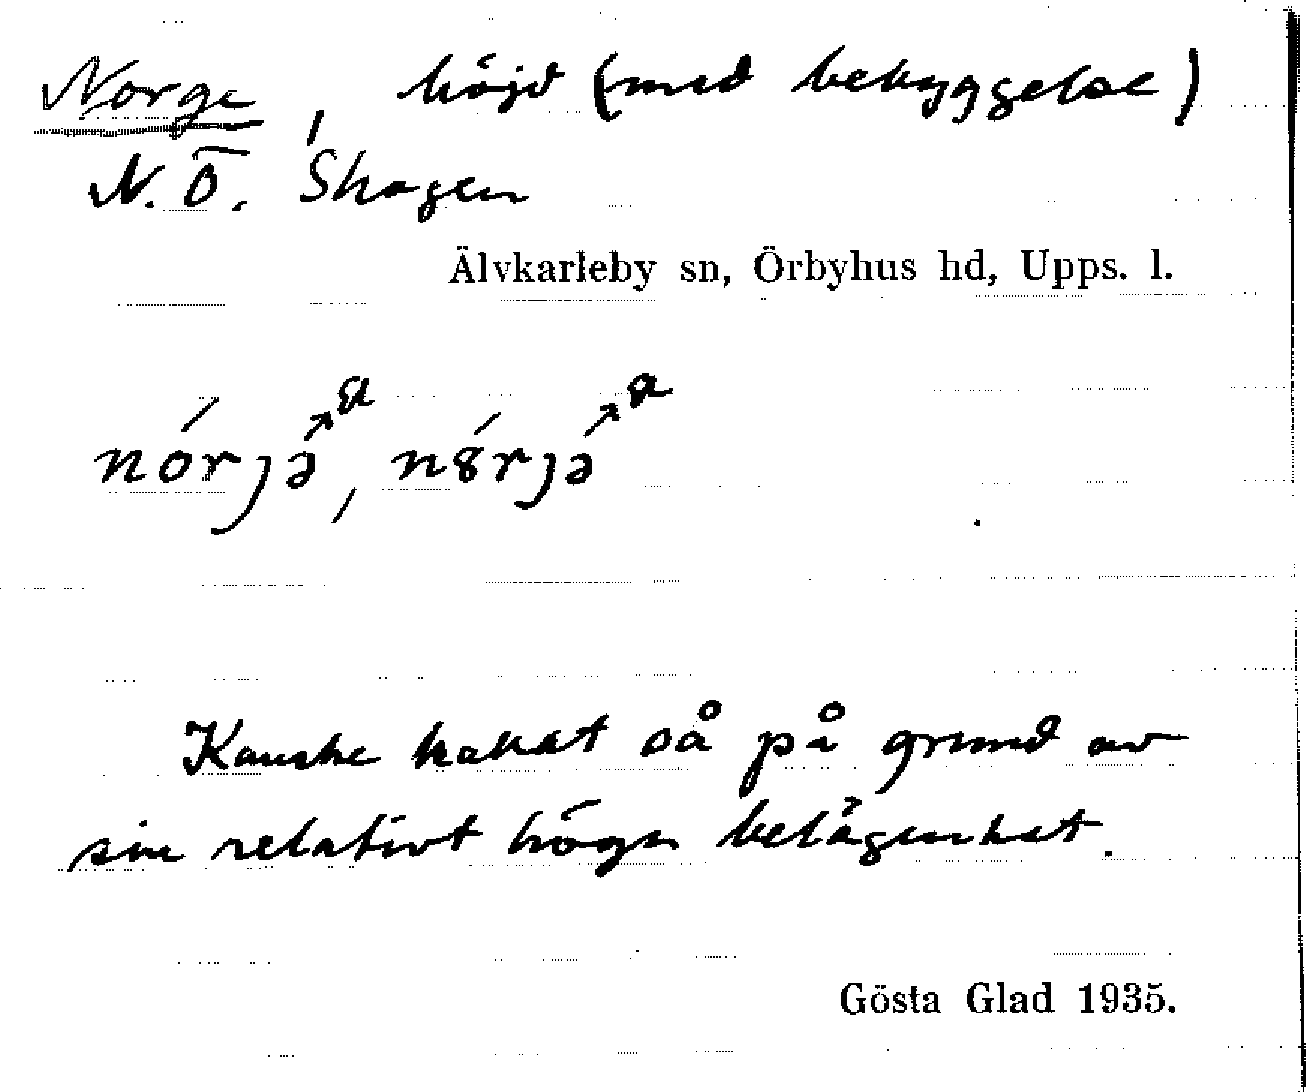 Norge, höjd (med bebyggelse)
N. Ö. Skagen
Älvkarleby sn, Örbyhus hd, Upps. l.
Kanske kallat så på grund av
sin relativt höga belägenhet.
Gösta Glad 1935.